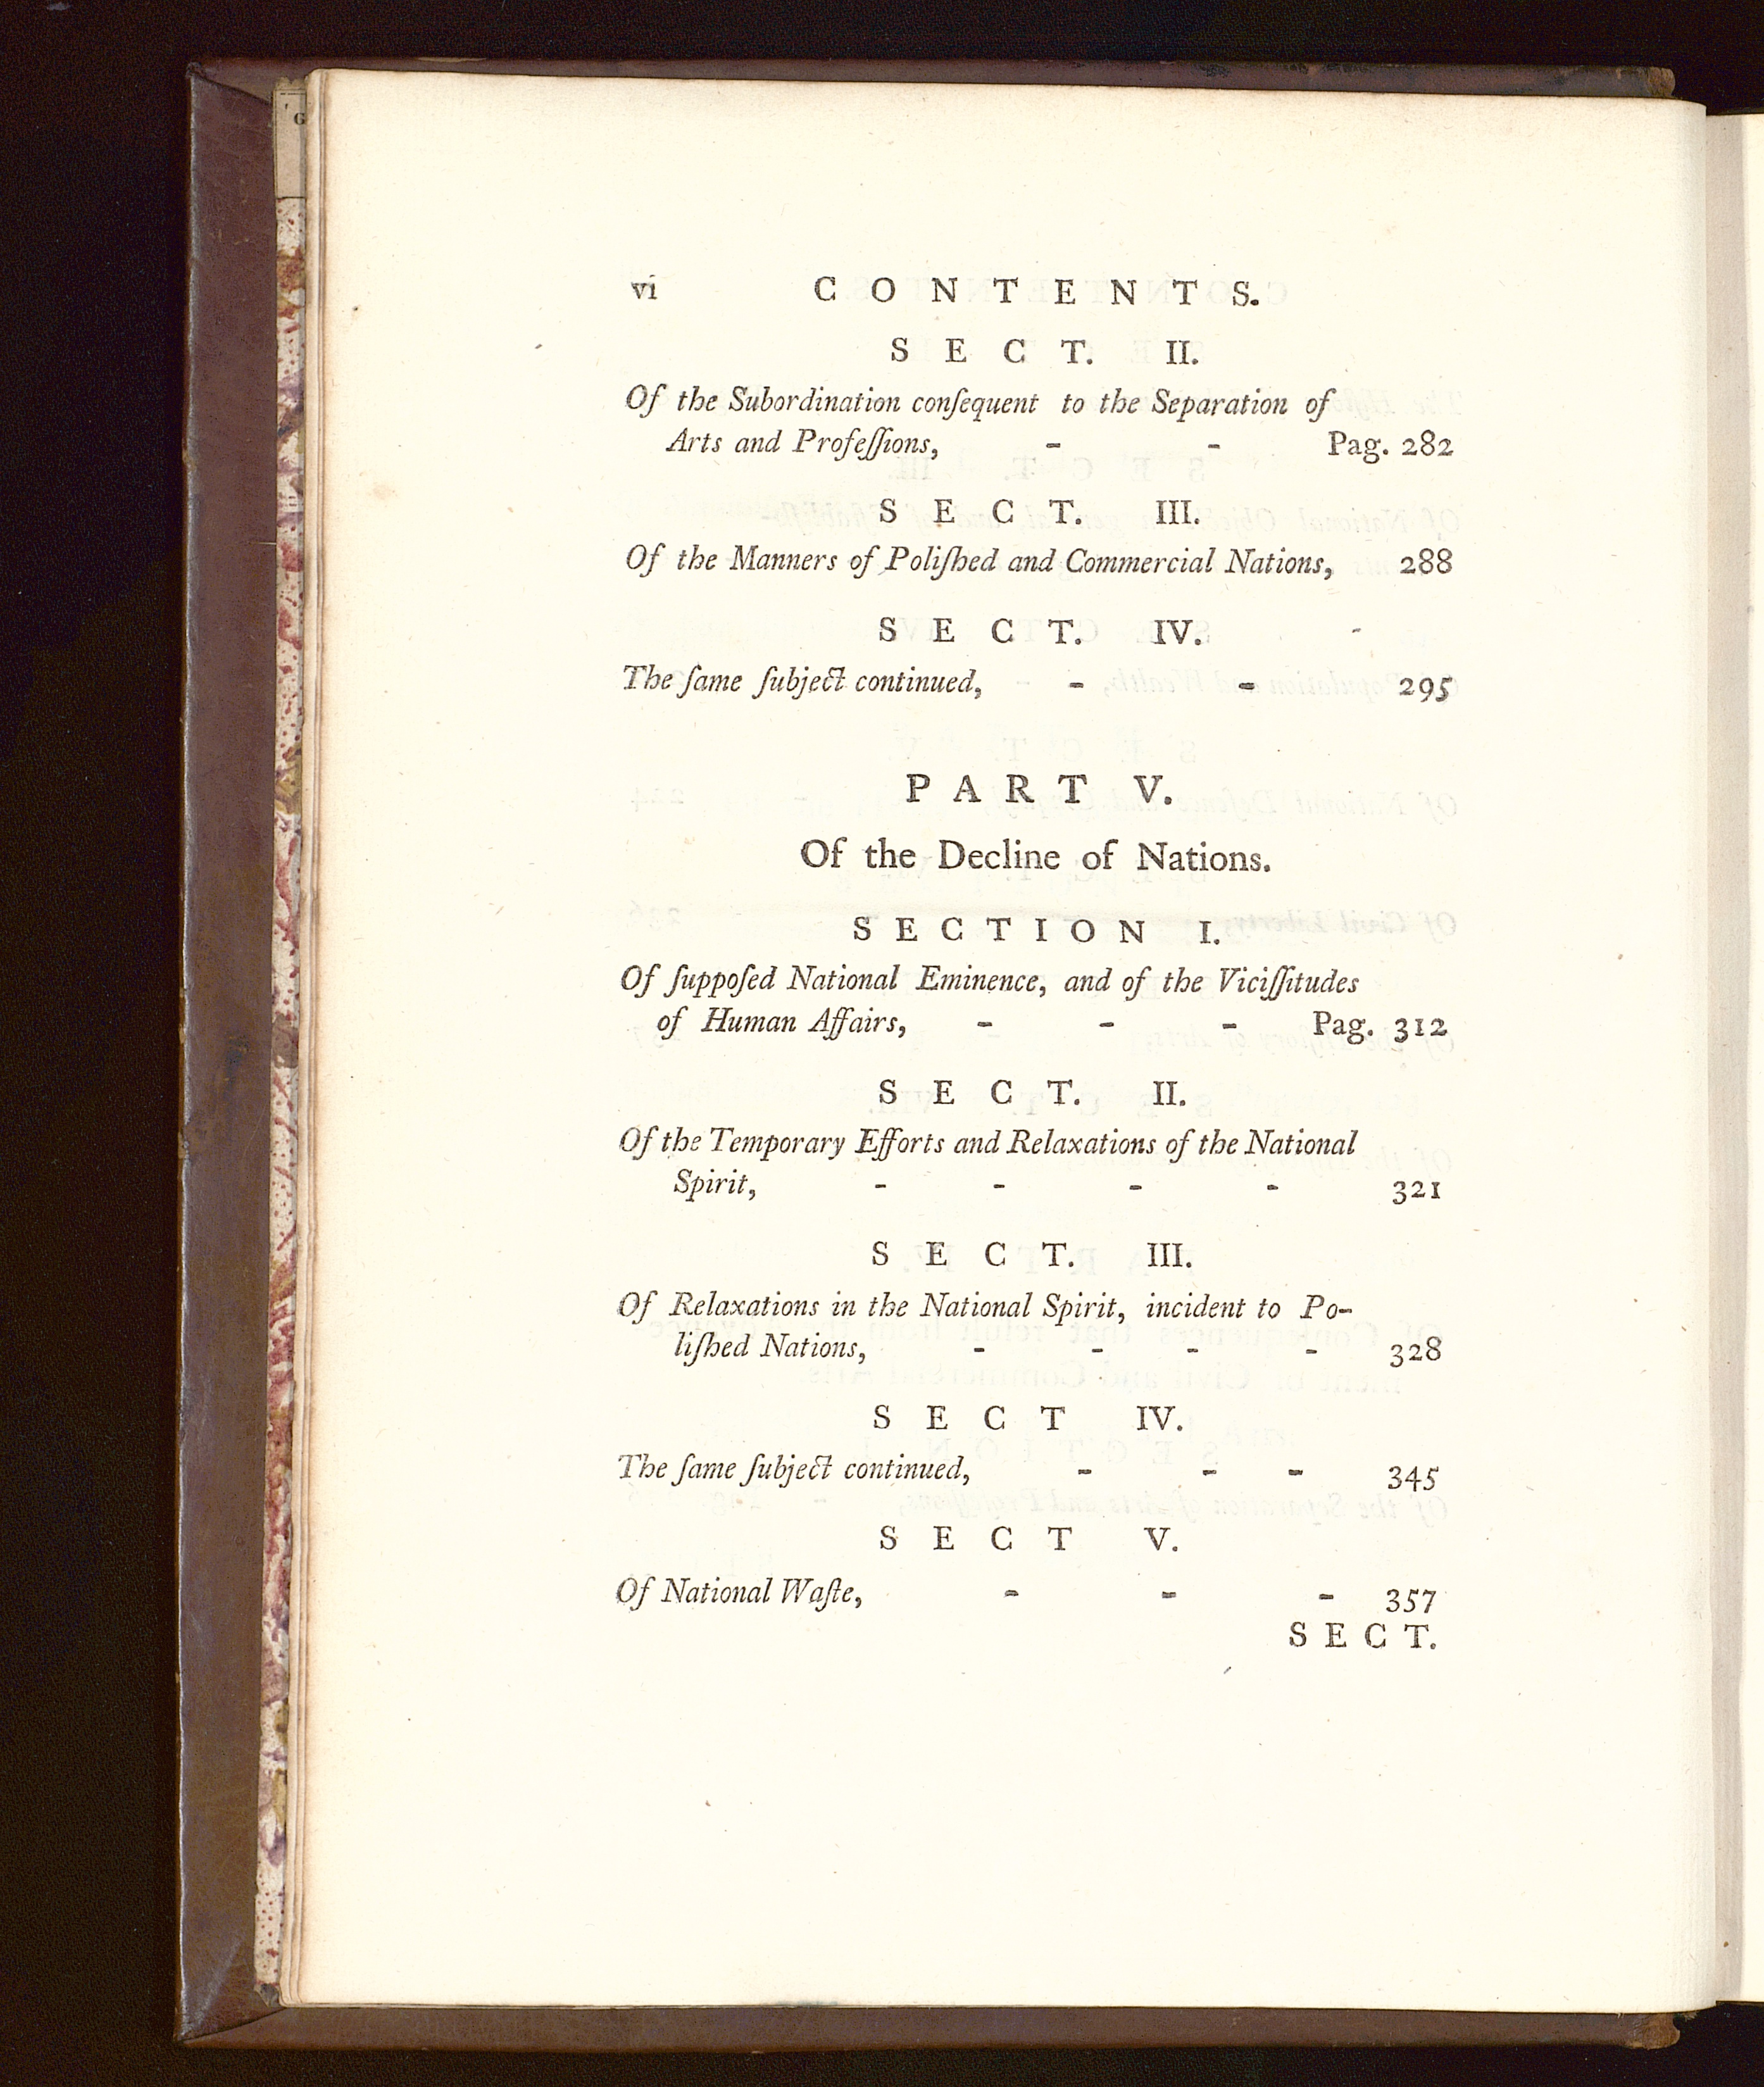 vi CONTENTS.
SECT. II.
Of the Subordination conſequent to the Separation of
Arts and Profeſſions, - - Pag. 282
SECT. III.
Of the Manners of Poliſhed and Commercial Nations, 288
SECT. IV.
The ſame ſubject continued, - - 295
PART V.
Of the Decline of Nations.
SECTION I.
Of ſuppoſed National Eminence, and of the Viciſſitudes
of Human Affairs, - - - Pag. 312
SECT. II.
Of the Temporary Efforts and Relaxations of the National
Spirit, - - - - 321
SECT. III.
Of Relaxations in the National Spirit, incident to Po-
liſhed Nations, - - - - 328
SECT IV.
The ſame ſubject continued, - - - 345
SECT V.
Of National Waſte, - - - 357
SECT.